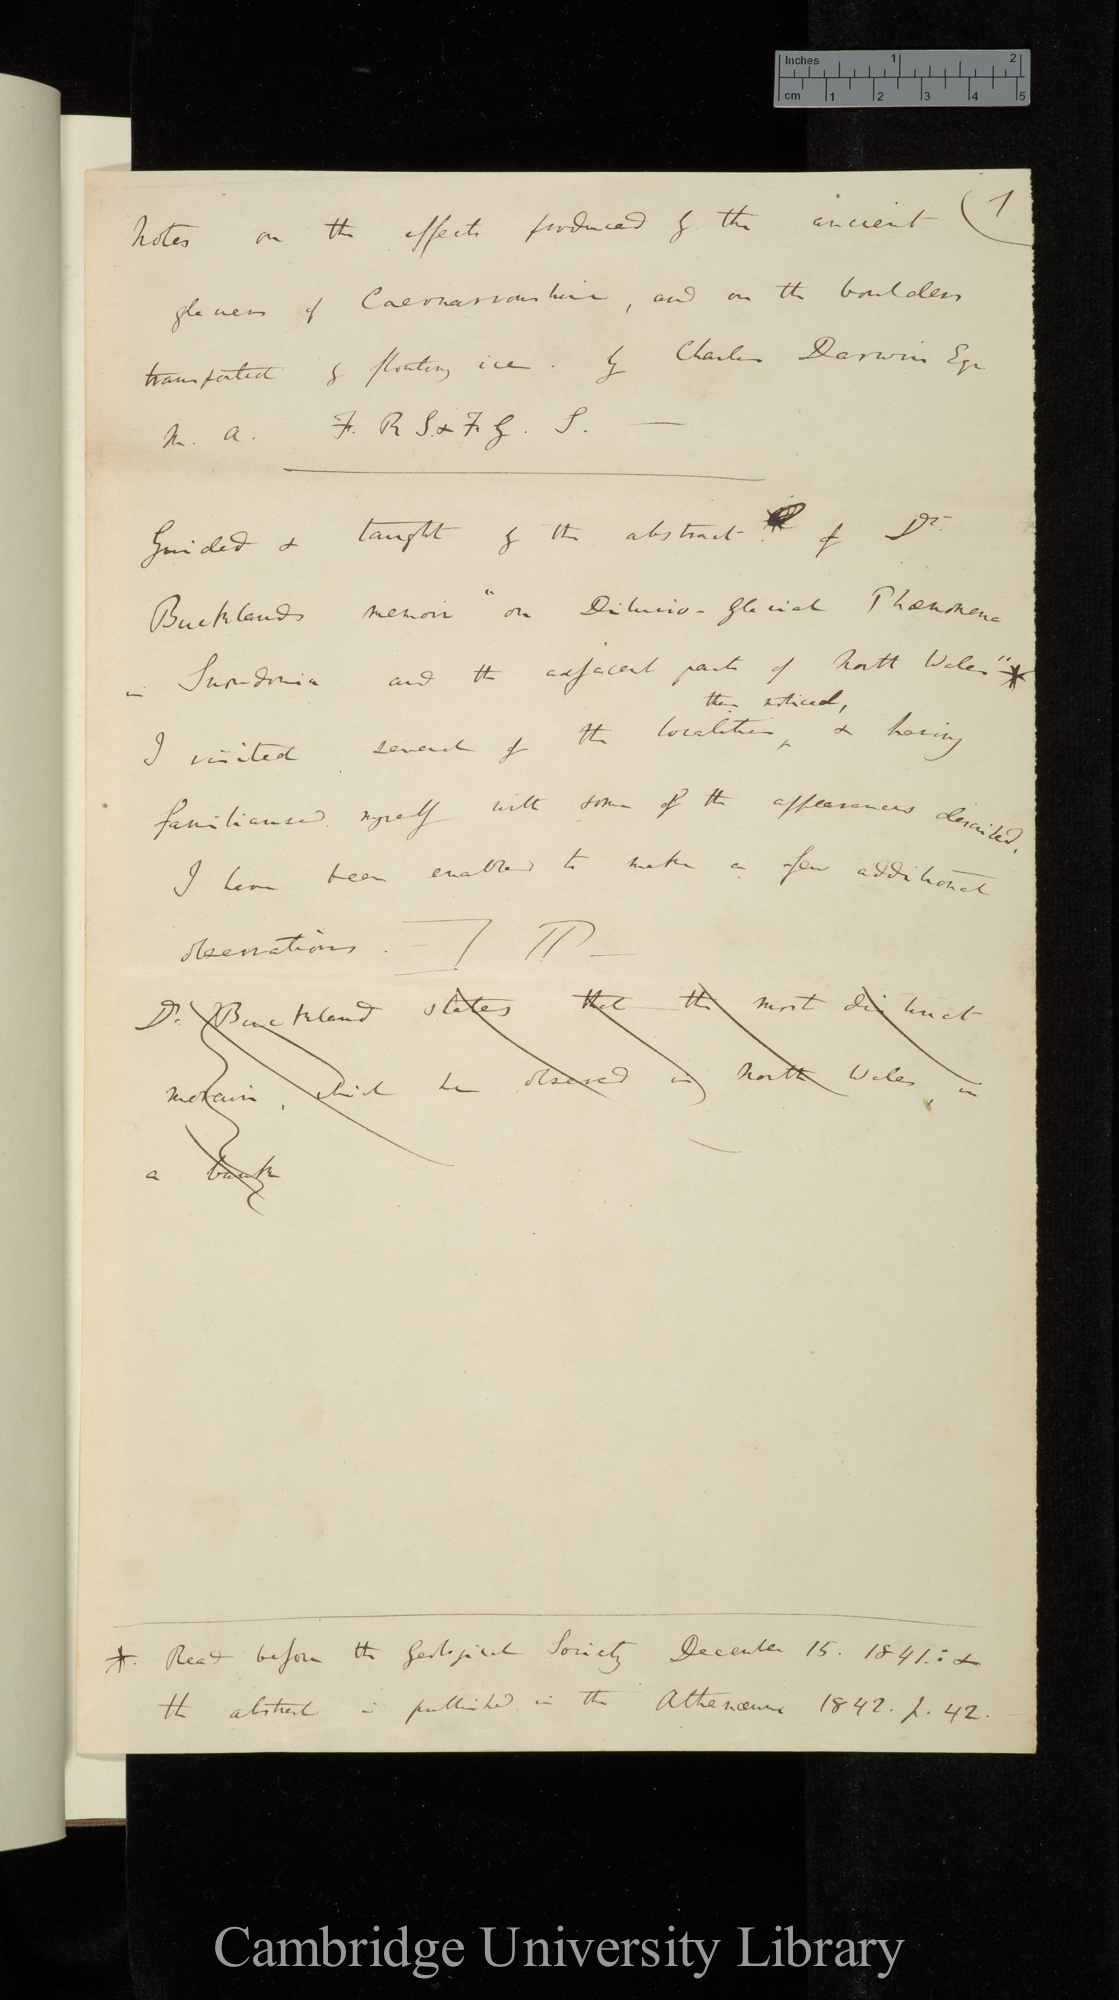 Inches 1 2
cm 1 2 3 4 5
1
Notes on the effects produced by the ancient
glaciers of Caernarvonshire, and on the boulders
transported by floating ice. by Charles Darwin Esqr
M. A. F. R S. & F. G. S. —
Guided & taught by the abstract of Dr.
Bucklands memoir "on Diluvio-glacial Phænomena
in Snowdonia and the adjacent parts of North Wales" *
then noticed,
I visited several of the localities, & having
familiarised myself with some of the appearances described,
I have been enabled to make a few additional
observations.
Dr. Buckland states that the most distinct
moraine, which he observed in North Wales, is
a bank
*. Read before the Geological Society December 15. 1841.: &
the abstract is published in the Athenæum 1842. p. 42.
Cambridge University Library